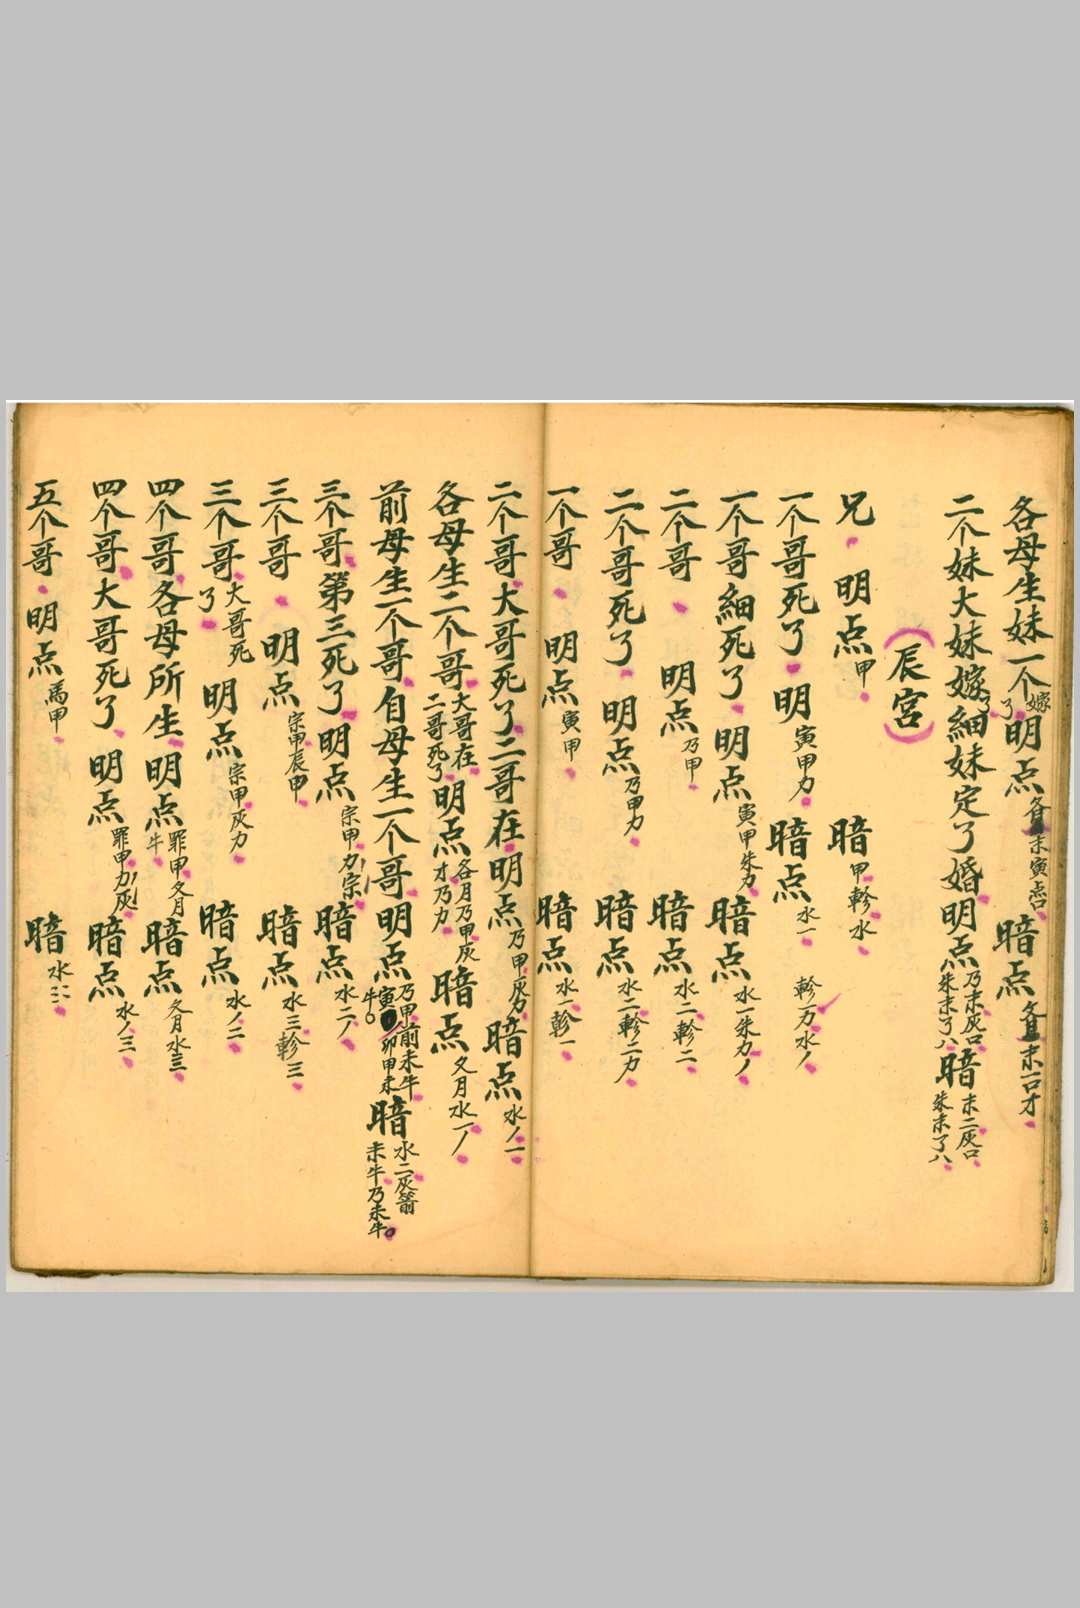 各母生妹一个嫁了明点各月末寅点口暗点文月末一口才
二个妹大妹嫁了細妹定了婚明点乃末灰口朱末了八暗末二灰口朱末了八
（辰宮）
兄明点甲暗甲軫水
一个哥死了明寅甲力暗点水一軫力水丿
一个哥細死了明点寅甲朱力暗点水一朱力丿
二个哥明点乃甲暗点水二軫二
二个哥死了明点乃甲力暗点水二軫二力
一个哥明点寅甲暗点水一軫一
二个哥大哥死了二哥在明点乃甲灰力暗点水丿一
各母生二个哥大哥在二哥死了明点各月乃甲灰才乃力暗点文月水一丿
前母生一个哥自母生一个哥明点乃甲前未牛寅卯甲未牛暗水二灰箭未牛乃未牛
三个哥第三死了明点宗甲力宗暗点水二丿
三个哥明点宗甲辰甲暗点水三軫三
三个哥大哥死了明点宗甲灰力暗点水丿二
四个哥各母所生明点罪甲文月牛暗点文月水三
四个哥大哥死了明点罪甲力灰暗点水丿三
五个哥明点馬甲暗水